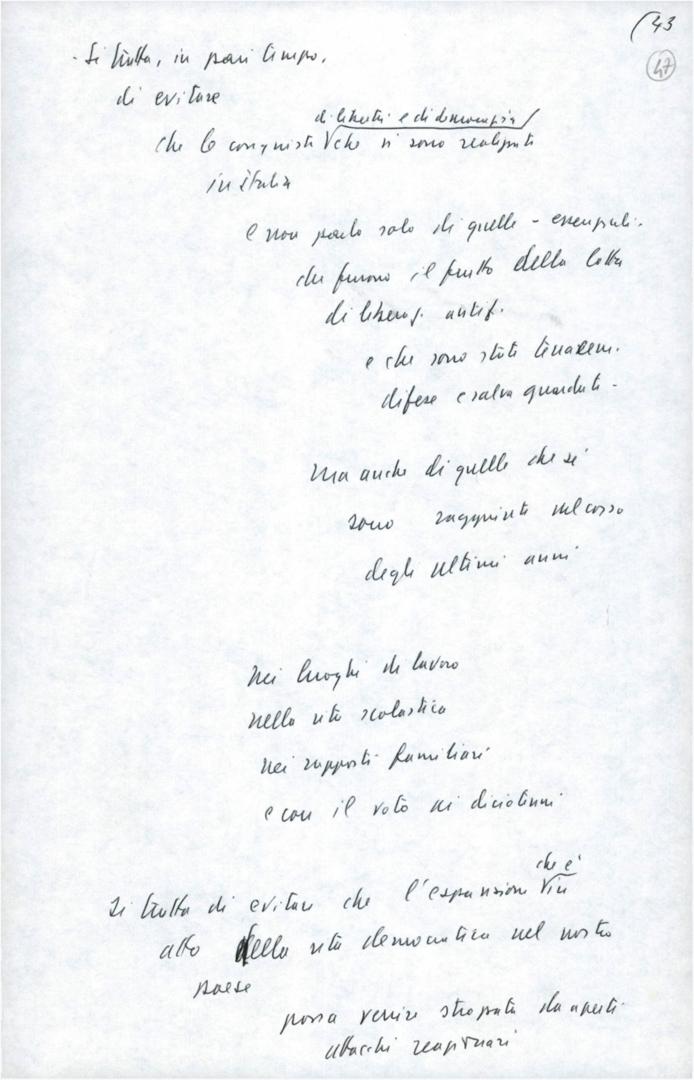 (43
47
- Si tratta, in pari tempo,
di evitare
di libertà e di democrazia
che le conquiste che si sono realizzate
in Italia
e non parlo solo di quelle - essenziali -
che furono il frutto della lotta
di liberaz. antif.
e che sono state tenacem.
difese e salvaguardate -
ma anche di quelle che si
sono raggiunte nel corso
degli ultimi anni
nei luoghi di lavoro
nella vita scolastica
nei rapporti familiari
e con il voto ai diciottenni
che è
Si tratta di evitare che l'espansione in
atto della vita democratica nel nostro
paese
possa venire stroncata da aperti
attacchi reazionari